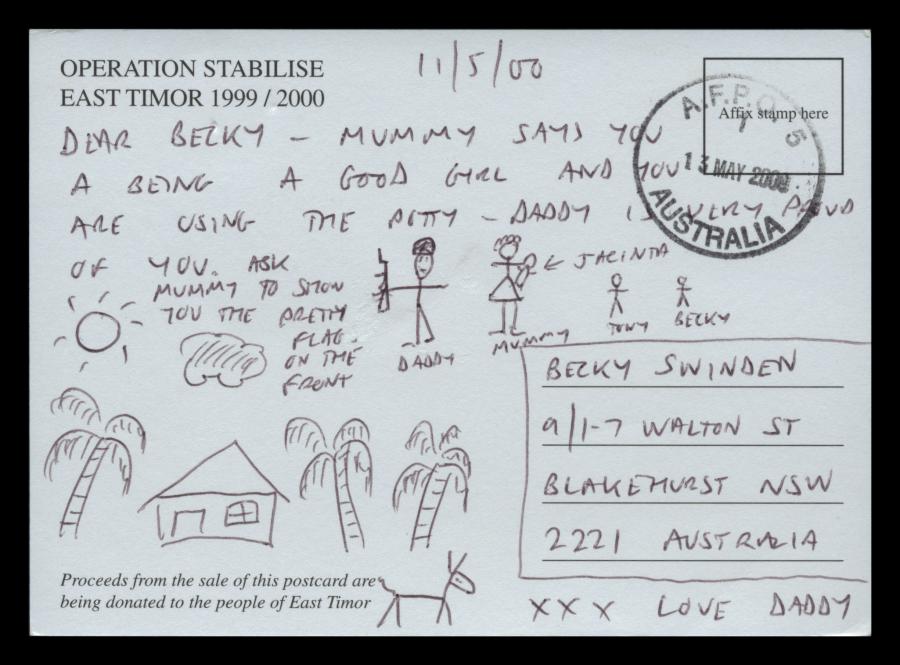 OPERATION STABILISE
EAST TIMOR 1999 / 2000
11/5/00
Affix stamp here
A.F.P.O. 5
1
13 MAY 2000
AUSTRALIA
DEAR BECKY – MUMMY SAYS YOU
A BEING A GOOD GIRL AND YOU
ARE USING THE POTTY – DADDY IS VERY PROUD
OF YOU. ASK
MUMMY TO SHOW
YOU THE PRETTY
FLAG.
ON THE
FRONT
DADDY
MUMMY
← JACINTA
TONY
BECKY
BECKY SWINDEN
9/1-7 WALTON ST
BLAKEHURST NSW
2221 AUSTRALIA
Proceeds from the sale of this postcard are
being donated to the people of East Timor
XXX LOVE DADDY